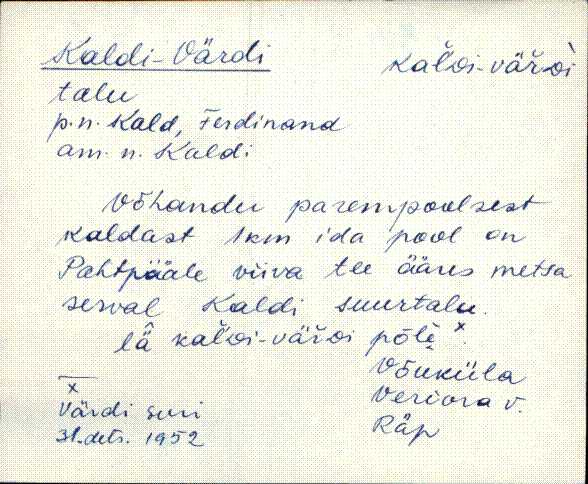 Kaldi-Värdi kal̆ᴅi-vär̆ᴅì
talu
p.n. Kald, Ferdinand
am. n. Kaldi
Võhandu parempoolsest
kaldast 1km ida pool on
Pahtpääle viiva tee ääres metsa
serval Kaldi suurtalu.
lä̂ kal̆ᴅi-vär̆ᴅi põlè ˣ.
Võuküla
Veriora v.
Räp
x
Värdi suri
31. dets. 1952